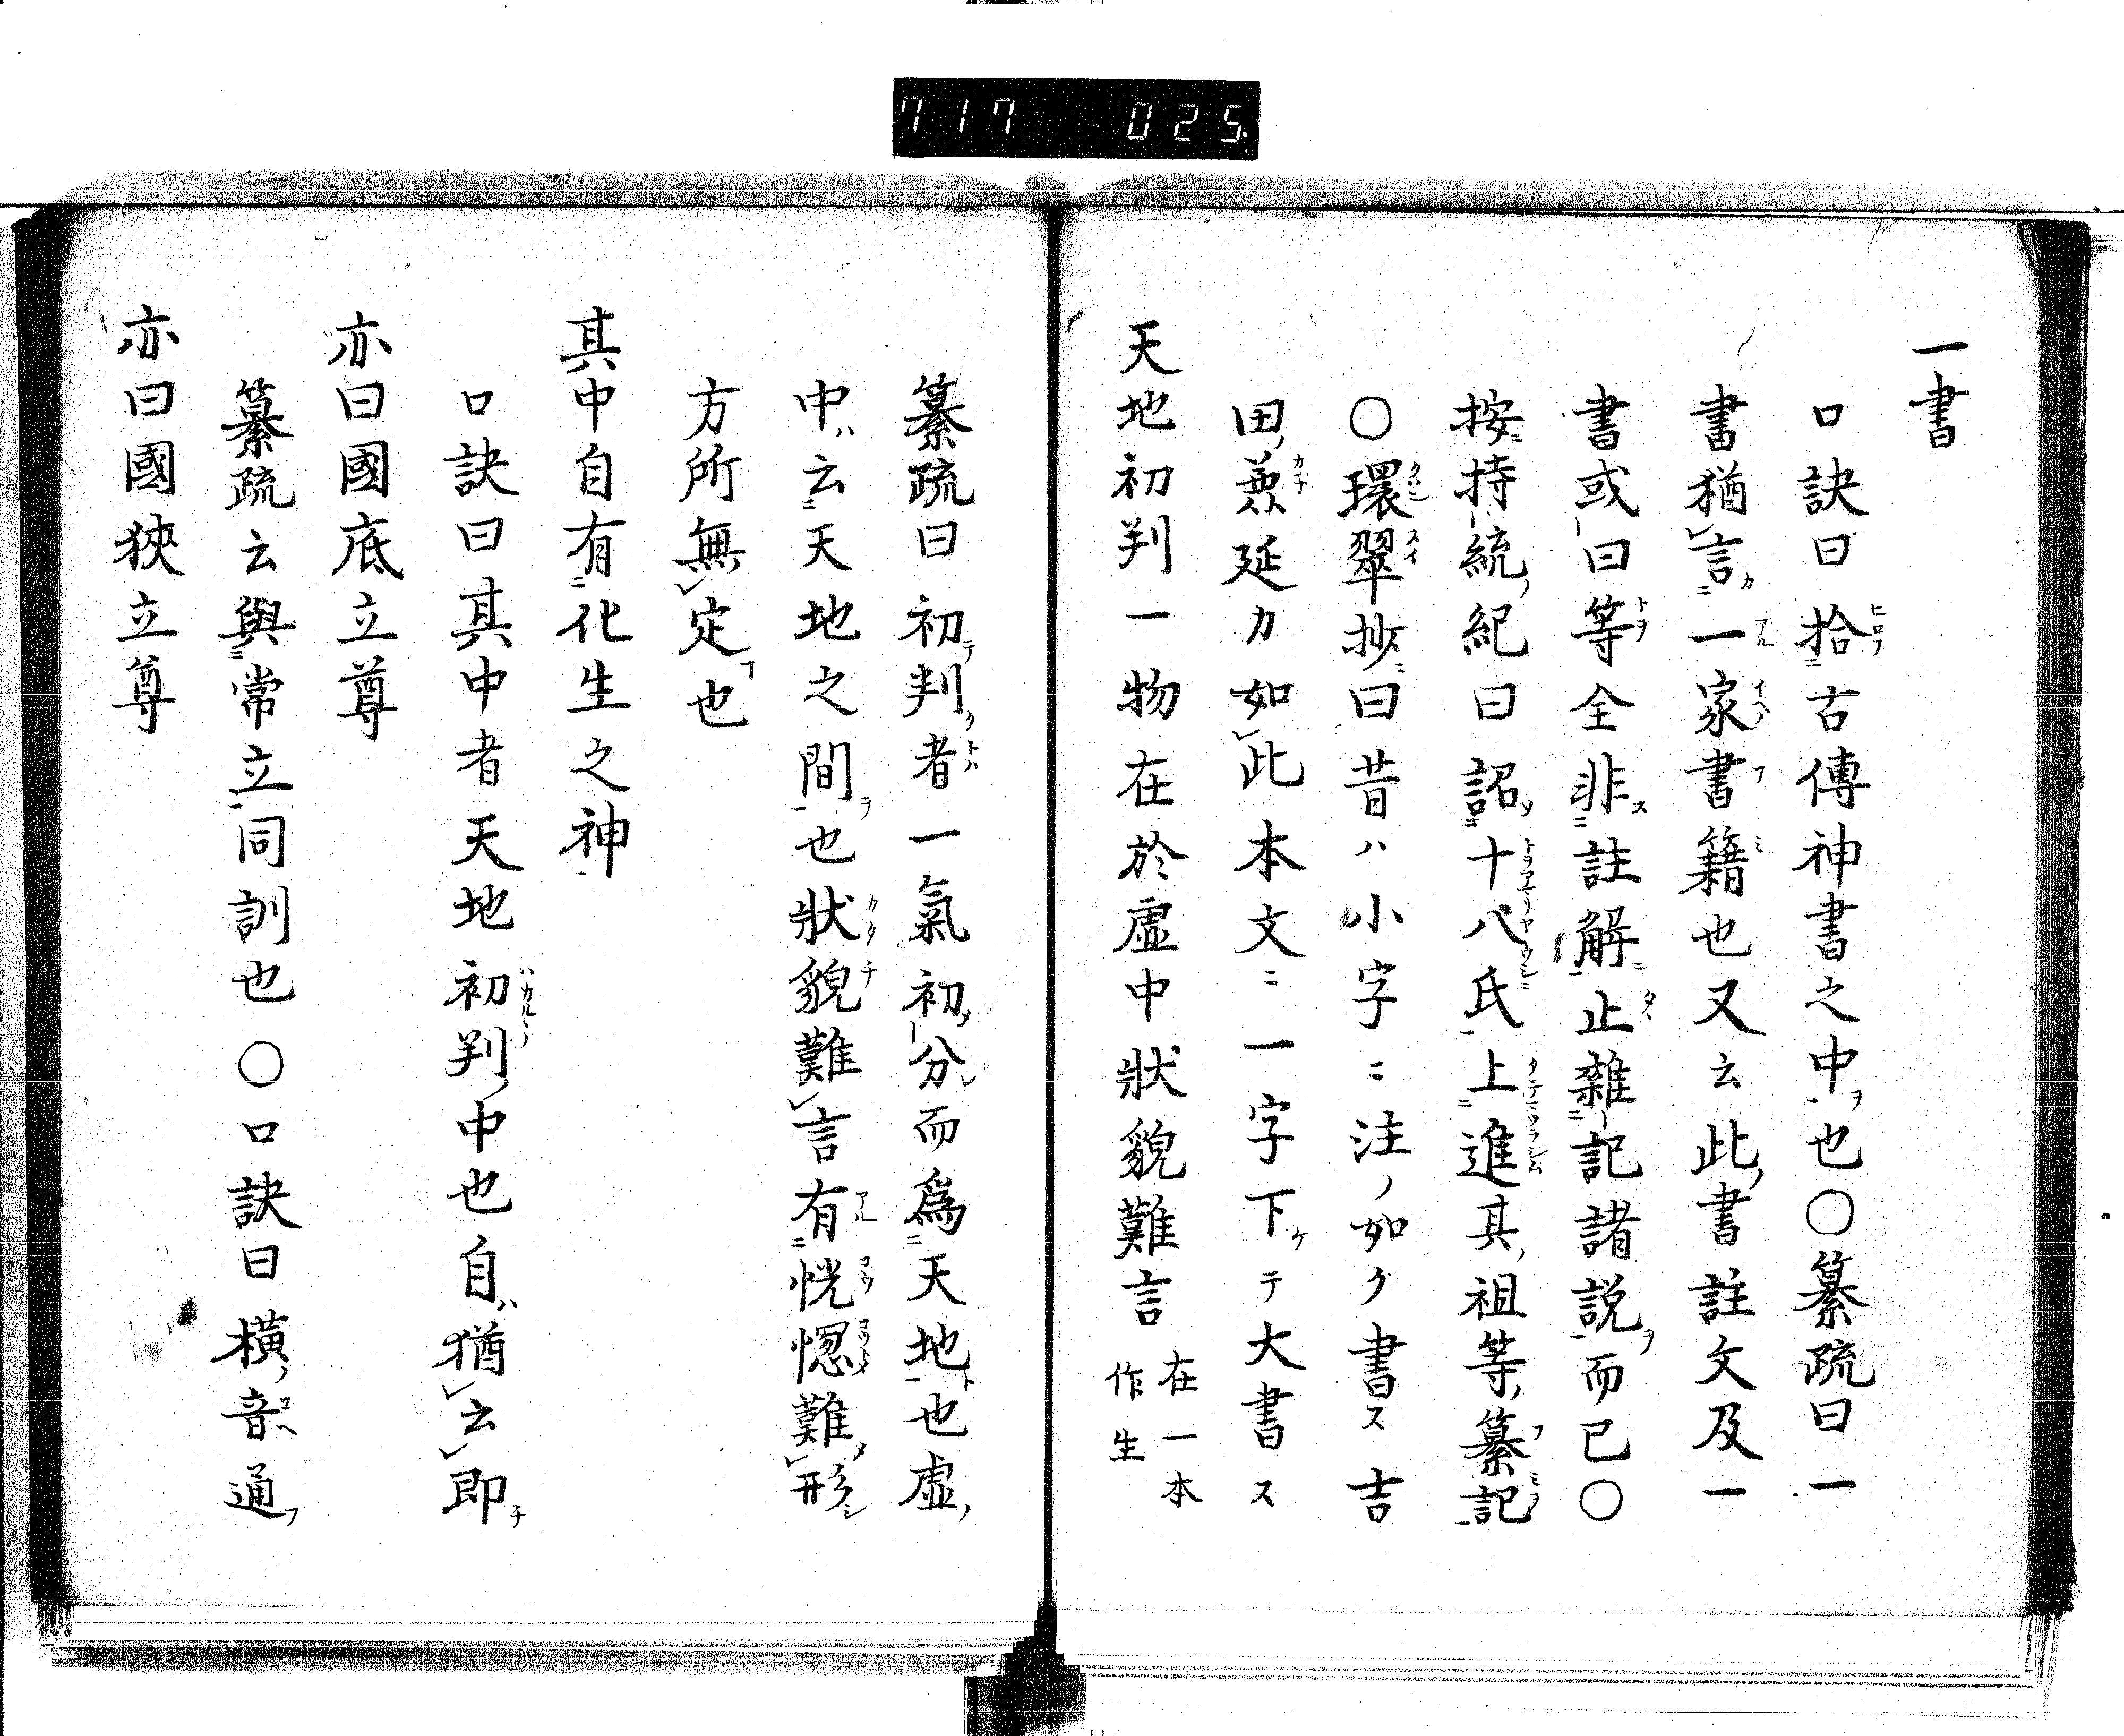 717 025
一書
口訣曰拾古傳神書之中也〇纂疏曰一
書猶言一家書籍也又云此書註文及一
書或曰等全非註解止雜記諸説而已〇
按持統紀曰詔十八氏上進其祖等纂記
〇環翠抄曰昔ハ小字ニ注ノ如ク書ス吉
田兼延カ如此本文ニ一字下ケテ大書ス
天地初判一物在於虛中狀貌難言 在一本作生
纂疏曰初判者一氣初分而爲天地也虛
中云天地之間也狀貌難言有恍惚難形
方所無定也
其中自有化生之神
口訣曰其中者天地初判中也自猶云即
亦曰國底立尊
纂疏云與常立同訓也〇口訣曰橫音通
亦曰國狹立尊